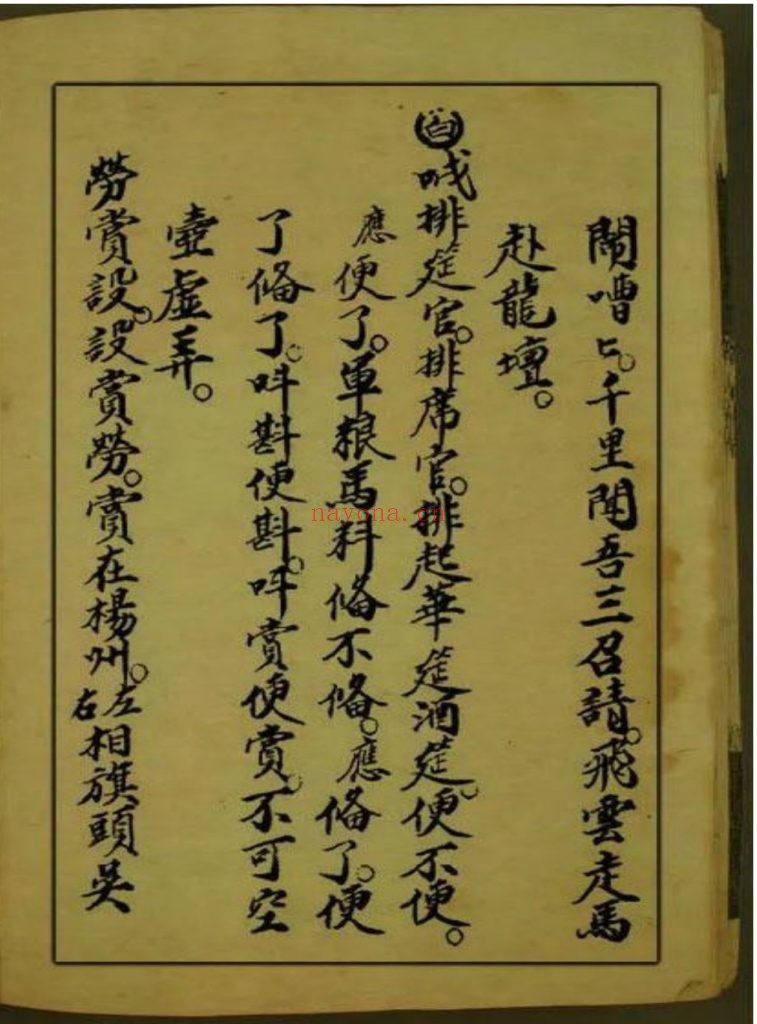 閙嘈匕。千里聞吾三召請。飛雲走馬
赴龍壇。
白 哦排筵官。排席官。排起華筵酒筵。便不便。
應便了。軍粮馬料俻不俻。應俻了。便
了俻了。呌斟便斟。呌賞便賞。不可空
壺虛弄。
勞賞設。設賞勞。賞在楊州。左右相旗頭吳
nayona.cn